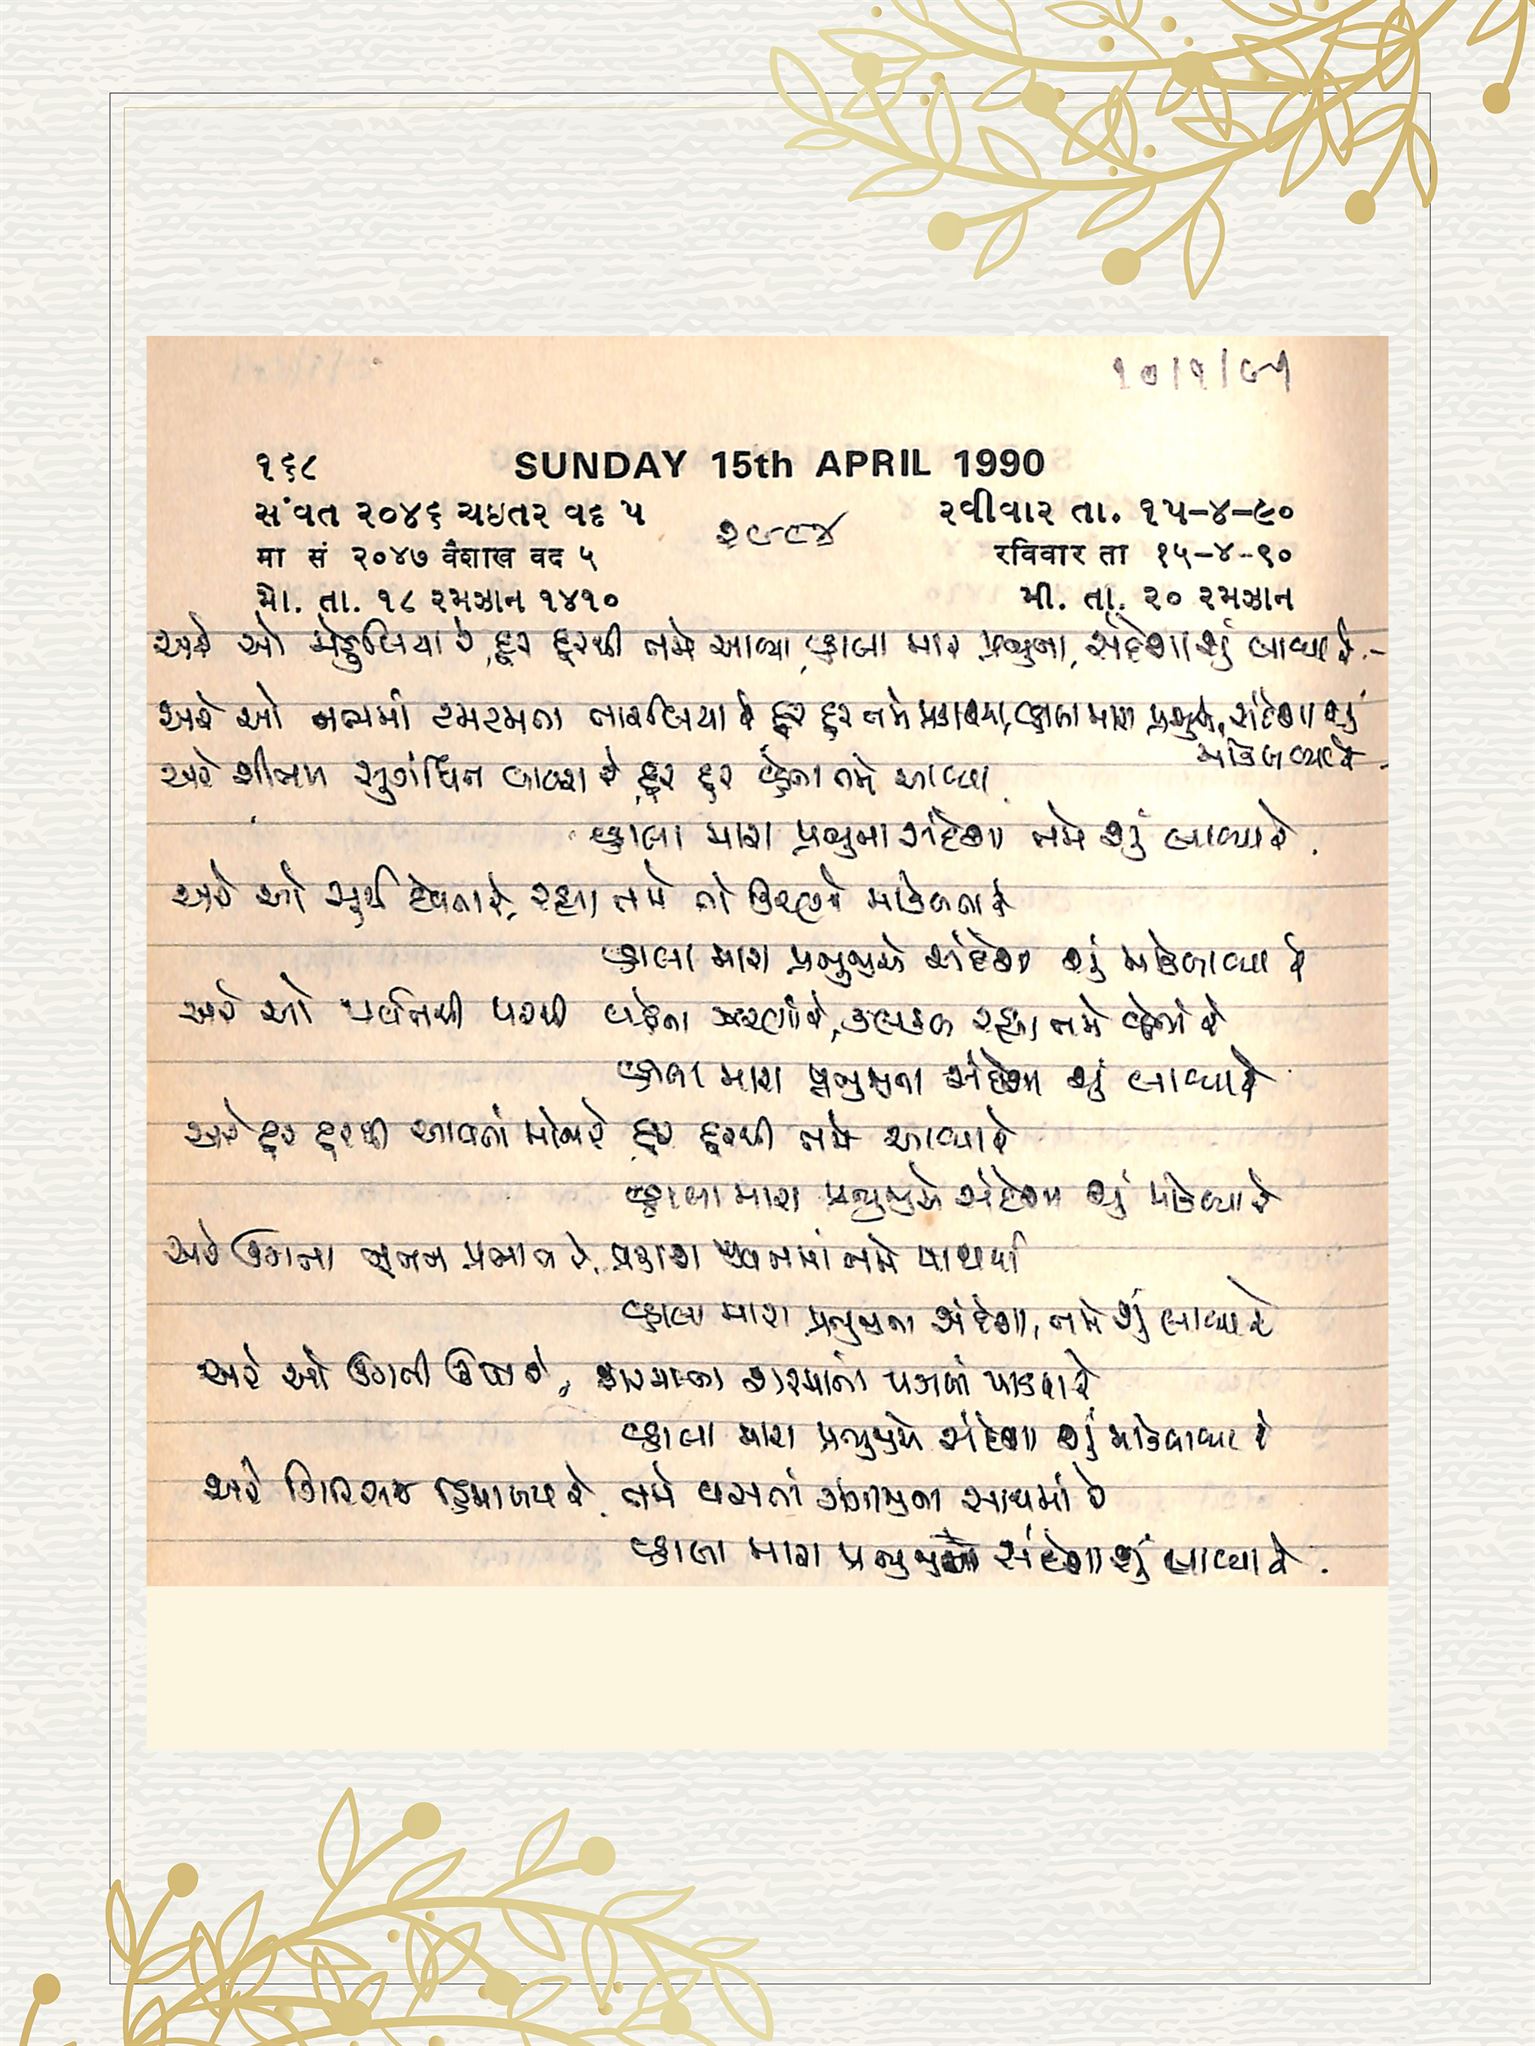 ૧૦/૧/૯૧
૧૬૮ SUNDAY 15th APRIL 1990
સંવત ૨૦૪૬ ચઇતર વદ ૫ ૨૯૮૪ રવીવાર તા. ૧૫-૪-૯૦
मा सं २०४७ वैशाख वद ५ रविवार ता १५-४-९०
મો. તા. ૧૮ રમઝાન ૧૪૧૦ મી. તા. ૨૦ રમઝાન
અરે ઓ મેહુલિયા રે, દૂર દૂરથી તમે આવ્યા, વ્હાલા મારા પ્રભુના, સંદેશા શું લાવ્યા રે
અરે ઓ નભમાં ટમટમતા તારલિયા રે દૂર દૂર તમે પ્રકાશ્યા, વ્હાલા મારા પ્રભુએ, સંદેશા શું
મોકલાવ્યા રે
અરે શીતળ સુગંધિત વાયરા રે, દૂર દૂર વ્હેતા તમે આવ્યા
વ્હાલા મારા પ્રભુના સંદેશા તમે શું લાવ્યા રે.
અરે ઓ સૂર્ય દેવતા રે, રહ્યા તમે તો કિરણો મોકલતા રે
વ્હાલા મારા પ્રભુજીએ સંદેશા શું મોકલાવ્યા રે
અરે ઓ પર્વતથી પરથી વહેતા ઝરણાં રે, ખલખલ રહ્યા તમે વ્હેતાં રે
વ્હાલા મારા પ્રભુજીના સંદેશા શું લાવ્યા રે
અરે દૂર દૂરથી આવતાં મોજા રે દૂર દૂરથી તમે આવ્યા રે
વ્હાલા મારા પ્રભુજીએ સંદેશા શું મોકલ્યા રે
અરે ઉગતા પ્રભાત રે, પ્રકાશ જીવનમાં તમે પાથર્યા
વ્હાલા મારા પ્રભુજીના સંદેશા, તમે શું લાવ્યા રે
અરે ઓ ઉગતી ઉષા રે, પગલાં પાડયા રે
વ્હાલા મારા પ્રભુજીએ સંદેશા શું મોકલાવ્યા રે
અરે ગિરિરાજ હિમાલય રે, તમે વસતાં સાથમાં રે
વ્હાલા મારા પ્રભુજીનો સંદેશા શું લાવ્યા રે.